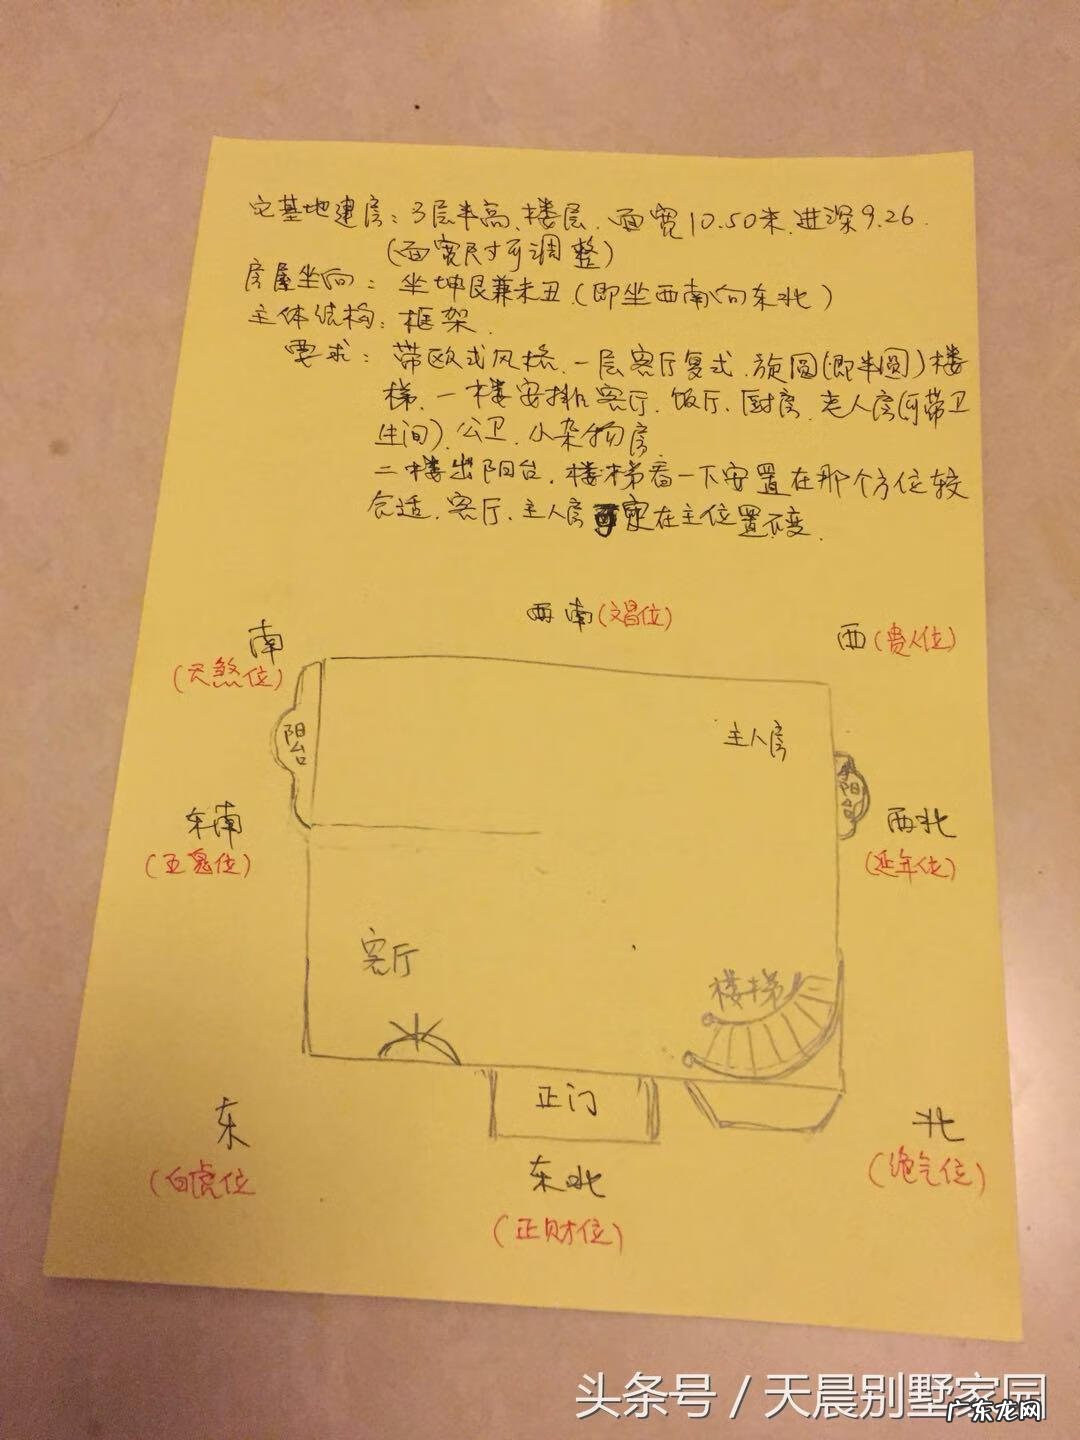 宅基地建房：3层半高、楼层、面宽10.50米、进深9.26.
(面宽尺寸可调整)
房屋坐向：坐坤艮兼未丑.(即坐西南向东北)
主体结构：框架.
要求：带欧式风格、一层客厅复式、旋圆(即半圆)楼
梯、一楼安排客厅、饭厅、厨房、老人房(可带卫
生间)、公卫、小杂物房.
二楼出阳台、楼梯看一下安置在那个方位较
合适、客厅、主人房定在主位置不变.
西南(文昌位)
南
(天煞位)
西(贵人位)
阳台
主人房
阳台
东南
(五鬼位)
西北
(延年位)
客厅
楼梯
正门
东
(白虎位
北
(绝气位)
东北
(正财位)
头条号 / 天晨别墅家园
广东龙网